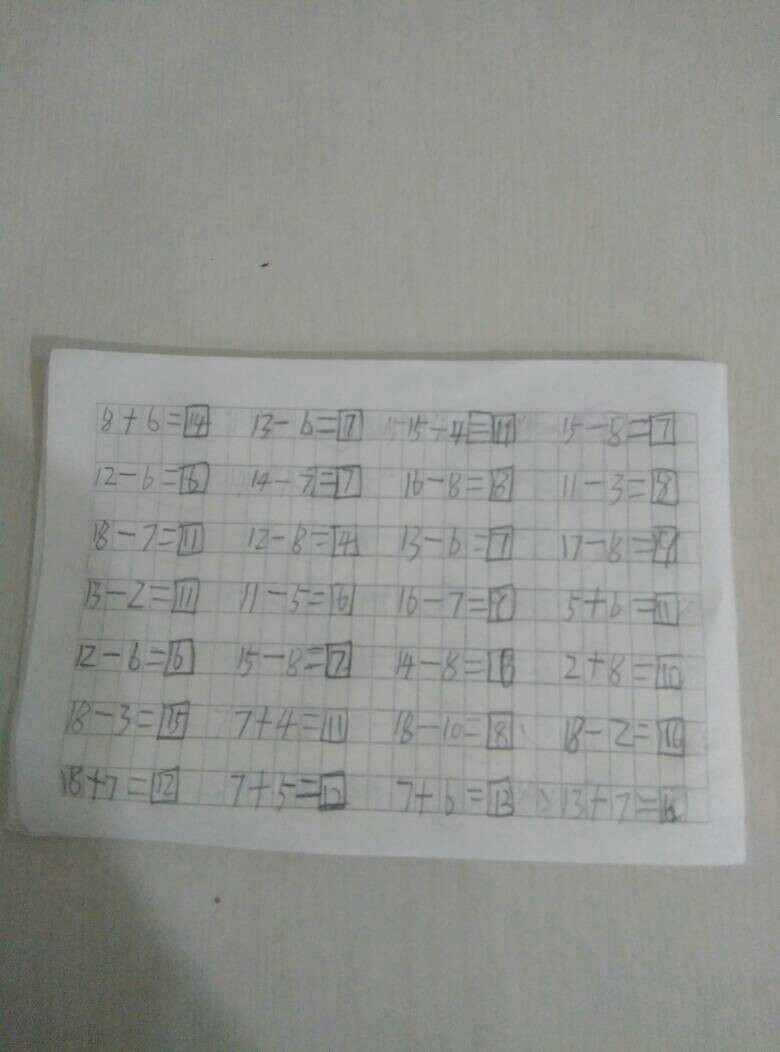 8+6=14 13-6=7 15-4=11 15-8=7
12-6=6 14-7=7 16-8=8 11-3=8
18-7=11 12-8=4 13-6=7 17-8=9
13-2=11 11-5=6 16-7=9 5+6=11
12-6=6 15-8=7 14-8= 2+8=10
18-3=15 7+4=11 18-10=8 18-2=16
18+7=12 7+5=12 7+6=13 13+7=